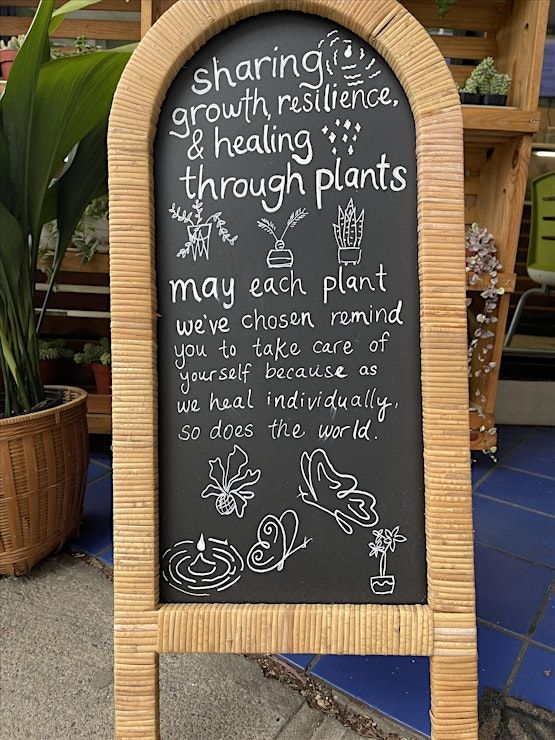 sharing
growth, resilience,
& healing
through plants
may each plant
we've chosen remind
you to take care of
yourself because as
we heal individually,
so does the world.